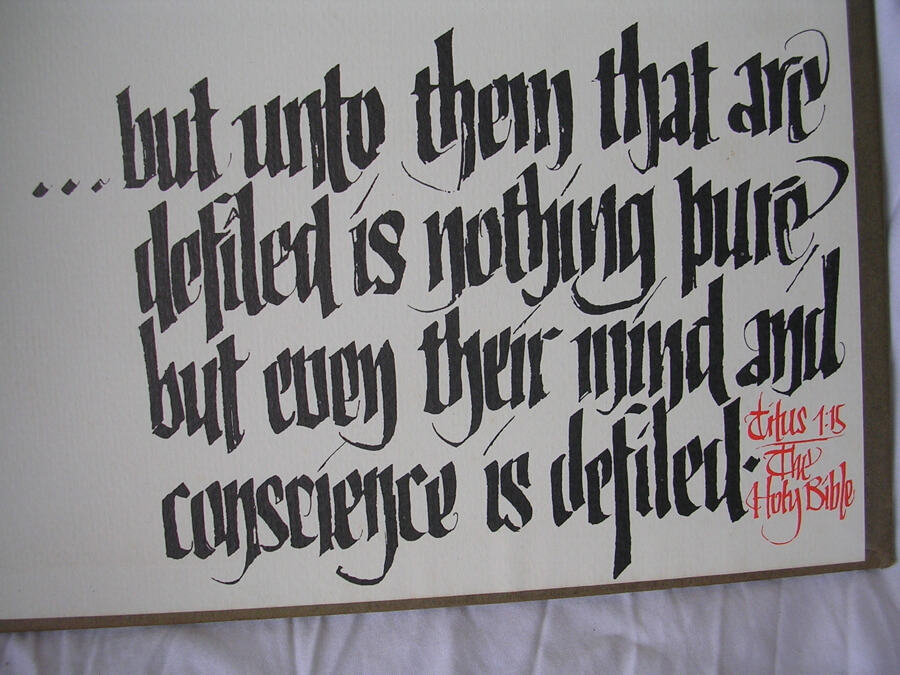 ...but unto them that are
defiled is nothing pure
but even their mind and
conscience is defiled.
Titus 1:15
The
Holy Bible